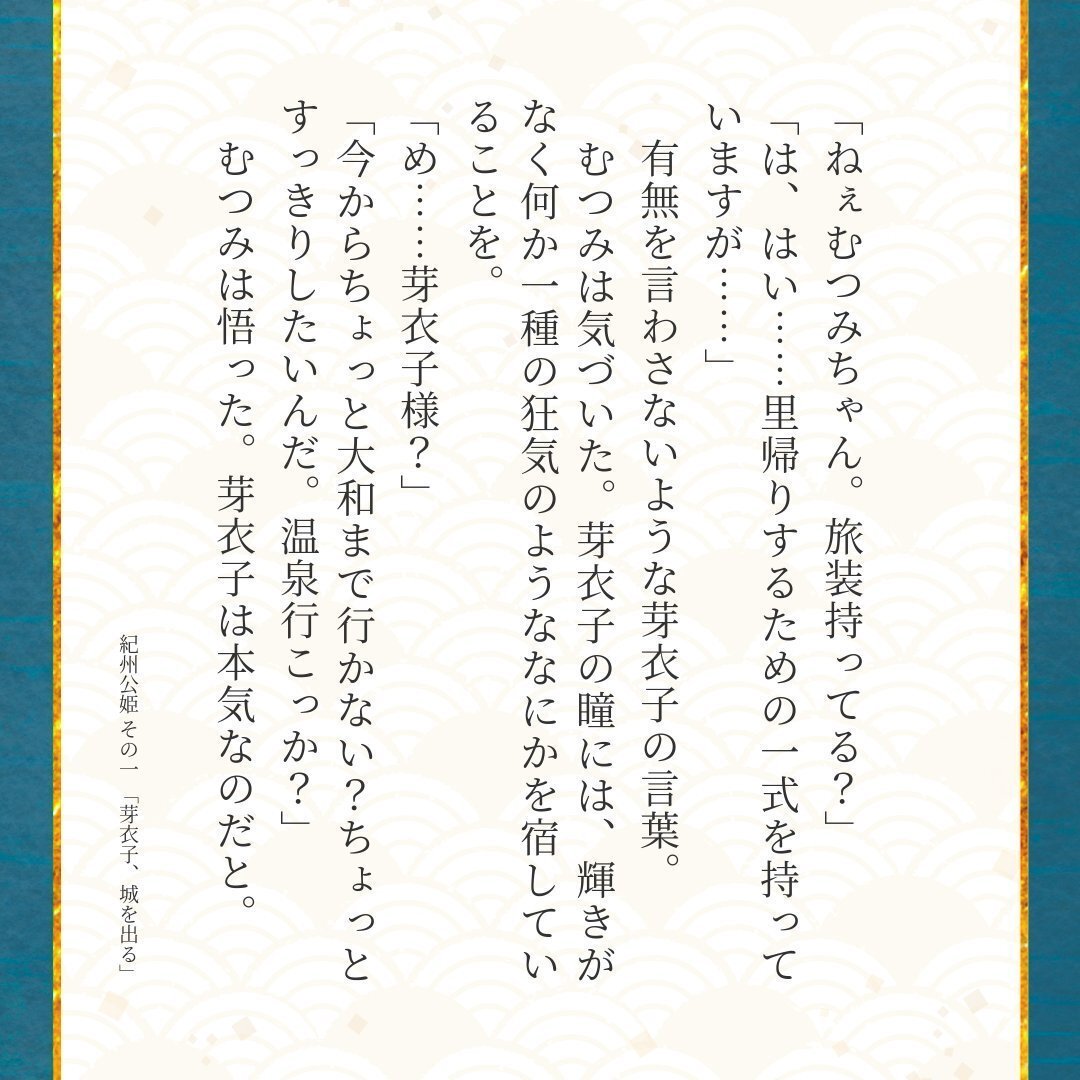 「ねぇむつみちゃん。旅装持ってる？」
「は、はい……里帰りするための一式を持って
いますが……」
　有無を言わさないような芽衣子の言葉。
　むつみは気づいた。芽衣子の瞳には、輝きが
なく何か一種の狂気のようななにかを宿してい
ることを。
「め……芽衣子様？」
「今からちょっと大和まで行かない？ちょっと
すっきりしたいんだ。温泉行こっか？」
　むつみは悟った。芽衣子は本気なのだと。
紀州公姫 その一 「芽衣子、城を出る」